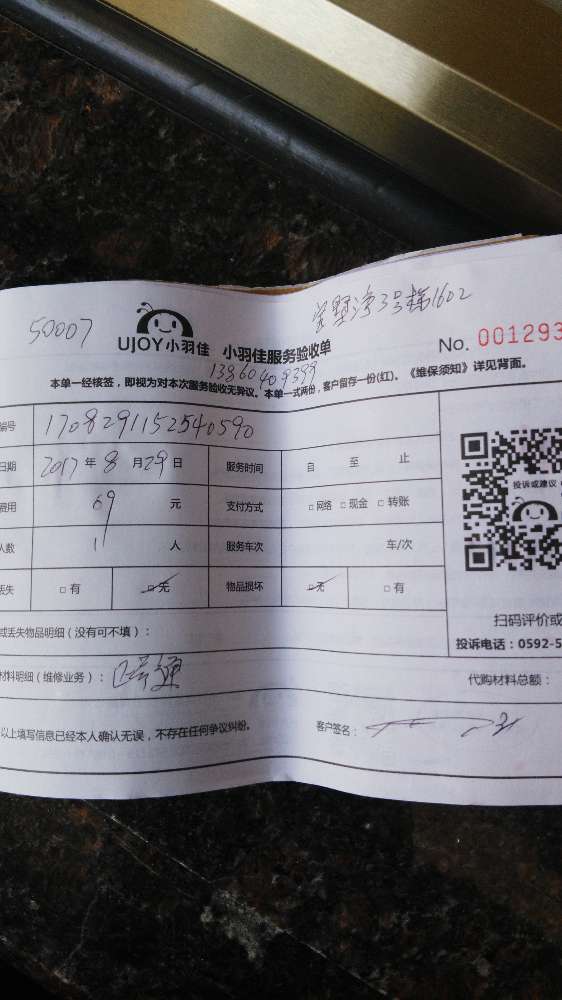 3号1602
50007
UJOY小羽佳 小羽佳服务验收单
No. 001293
13860409399
本单一经核签，即视为对本次服务验收无异议。本单一式两份，客户留存一份(红)。《维保须知》详见背面。
编号 1708291152540590
日期 2017 年 8 月 29 日 服务时间 自 至 止
费用 69 元 支付方式 □ 网络 □ 现金 □ 转账
人数 1 人 服务车次 车/次
丢失 □ 有 □ 无 物品损坏 □ 无 □ 有
投诉或建议
或丢失物品明细（没有可不填）：
扫码评价或
投诉电话：0592-5
材料明细（维修业务）： 代购材料总额：
以上填写信息已经本人确认无误，不存在任何争议纠纷。 客户签名：